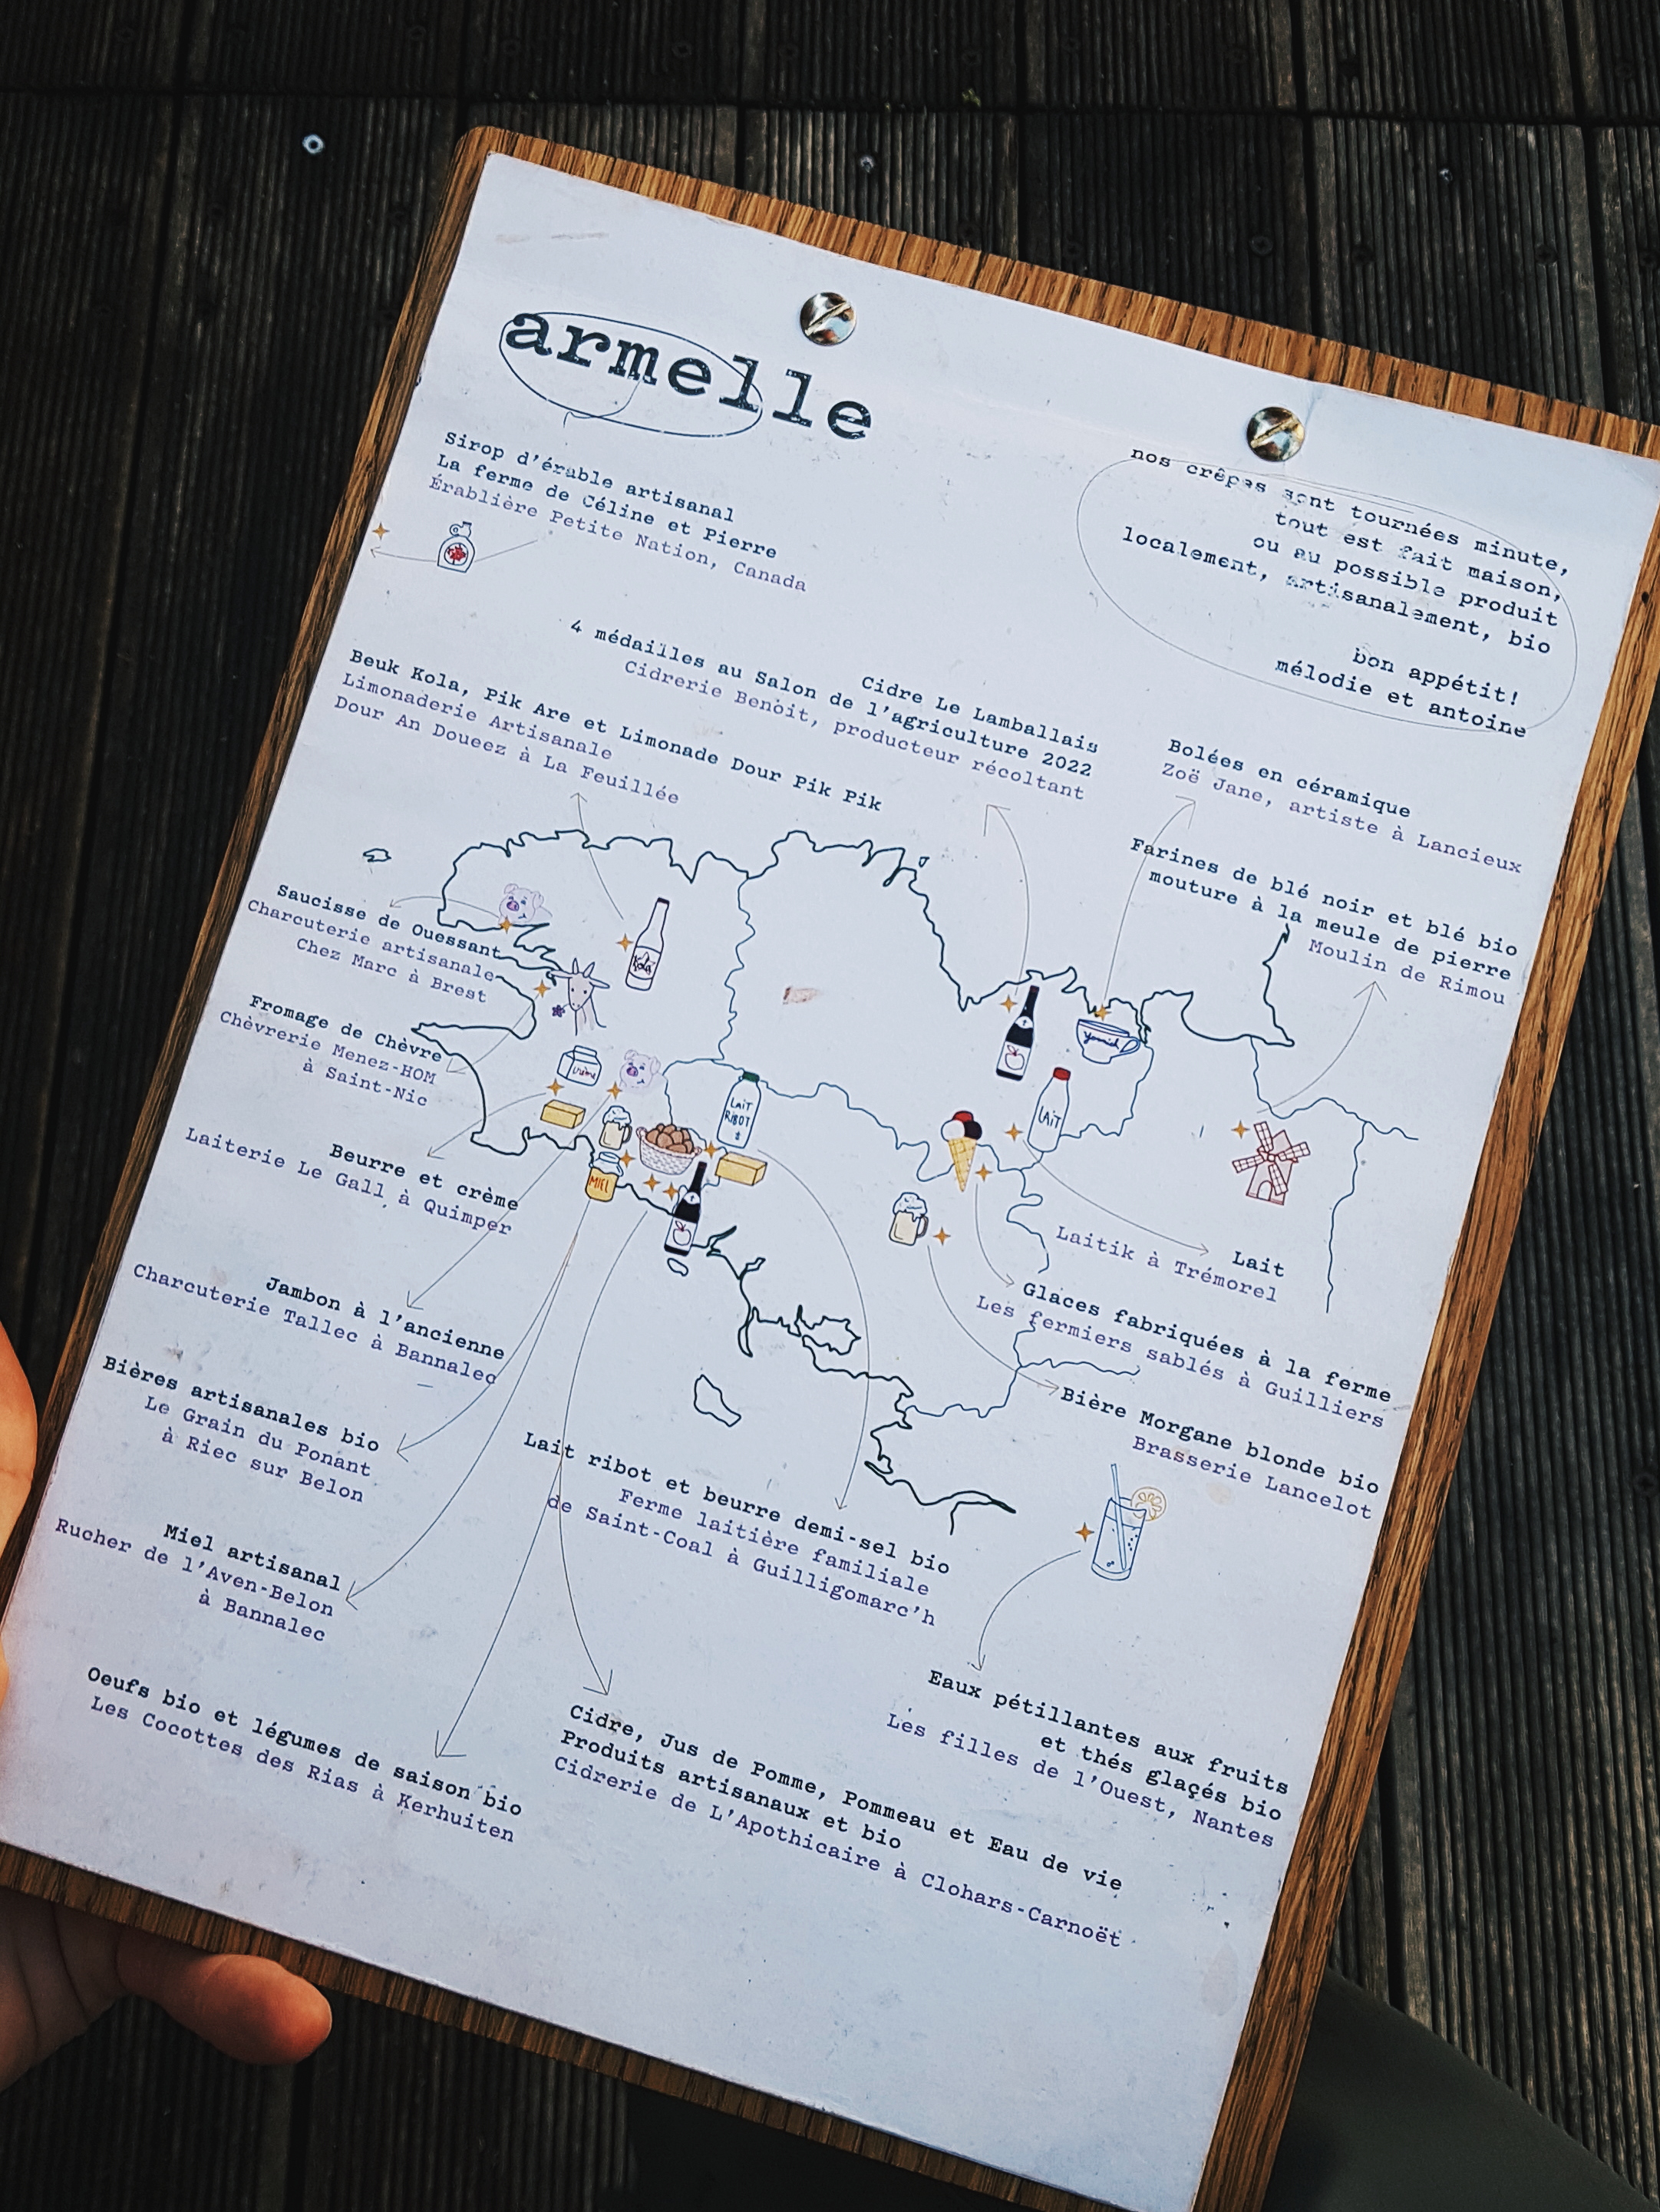 armelle
Sirop d'érable artisanal
La ferme de Céline et Pierre
Érablière Petite Nation, Canada
nos crêpes sont tournées minute,
tout est fait maison,
ou au possible produit
localement, artisanalement, bio
bon appétit!
mélodie et antoine
Cidre Le Lamballais
4 médailles au Salon de l'agriculture 2022
Cidrerie Benoit, producteur récoltant
Beuk Kola, Pik Are et Limonade Dour Pik Pik
Limonaderie Artisanale
Dour An Doueez à La Feuillée
Bolées en céramique
Zoë Jane, artiste à Lancieux
Farines de blé noir et blé bio
mouture à la meule de pierre
Moulin de Rimou
Saucisse de Ouessant
Charcuterie artisanale
Chez Marc à Brest
Kola
Fromage de Chèvre
Chèvrerie Menez-HOM
à Saint-Nic
crème
LAIT
RIBOT
LAIT
MIEL
Beurre et crème
Laiterie Le Gall à Quimper
Lait
Laitik à Trémorel
Glaces fabriquées à la ferme
Les fermiers sablés à Guilliers
Jambon à l'ancienne
Charcuterie Tallec à Bannalec
Bière Morgane blonde bio
Brasserie Lancelot
Bières artisanales bio
Le Grain du Ponant
à Riec sur Belon
Lait ribot et beurre demi-sel bio
Ferme laitière familiale
de Saint-Coal à Guilligomarc'h
Miel artisanal
Rucher de l'Aven-Belon
à Bannalec
Eaux pétillantes aux fruits
et thés glaçés bio
Les filles de l'Ouest, Nantes
Oeufs bio et légumes de saison bio
Les Cocottes des Rias à Kerhuiten
Cidre, Jus de Pomme, Pommeau et Eau de vie
Produits artisanaux et bio
Cidrerie de L'Apothicaire à Clohars-Carnoët